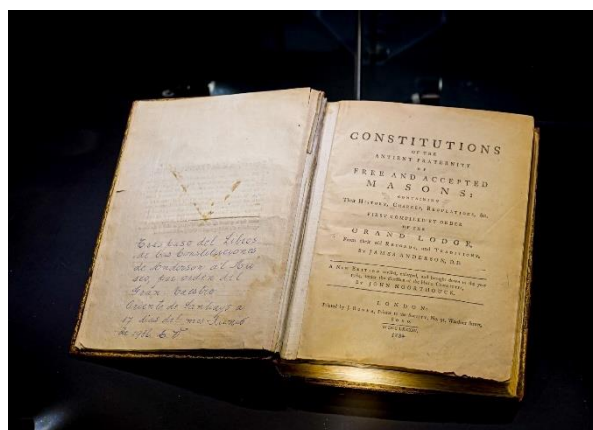 Este paso del Libros
de las Constituciones
de Anderson al Mu
seo, por orden del
Gran Maestro.
Oriente de Santiago a
17 dias del mes
de
CONSTITUTIONS
OF THE
ANTIENT FRATERNITY
OF
FREE AND ACCEPTED
MASONS;
CONTAINING
Their HISTORY, CHARGES, REGULATIONS, &c.
FIRST COMPILED BY ORDER
OF THE
GRAND LODGE,
From their old RECORDS, and TRADITIONS,
By JAMES ANDERSON, D.D.
A NEW EDITION revised, enlarged, and brought down to the year
under the direction of the HALL COMMITTEE,
By JOHN NOORTHOUCK.
LONDON:
Printed by J. Printer to the SOCIETY, No.